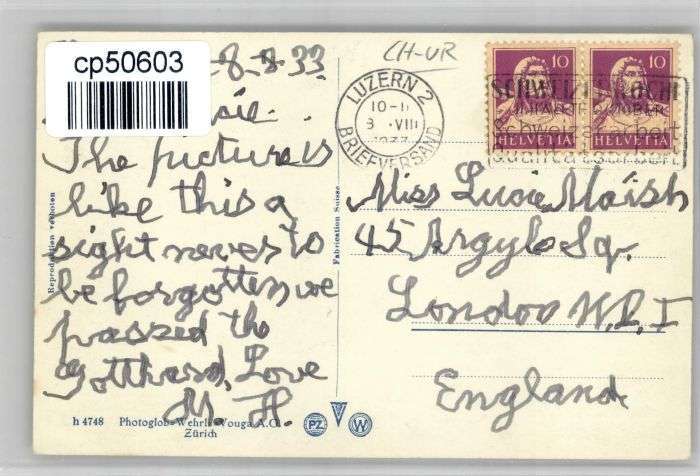 cp50603
8-8-33
CH-UR
The picture is
like this a
sight never to
be forgotten we
passed the
Gotthard. Love
M. H.
LUZERN 2
10-11
VIII
BRIEFVERSAND
10 10
HELVETIA HELVETIA
Miss Lucie Marsh
45 Argyle Sq.
London W.C.I
England
Reproduction verboten
Fabrication Suisse
h 4748 Photoglob-Wehrli-Vouga A.G.
Zürich
PZ W